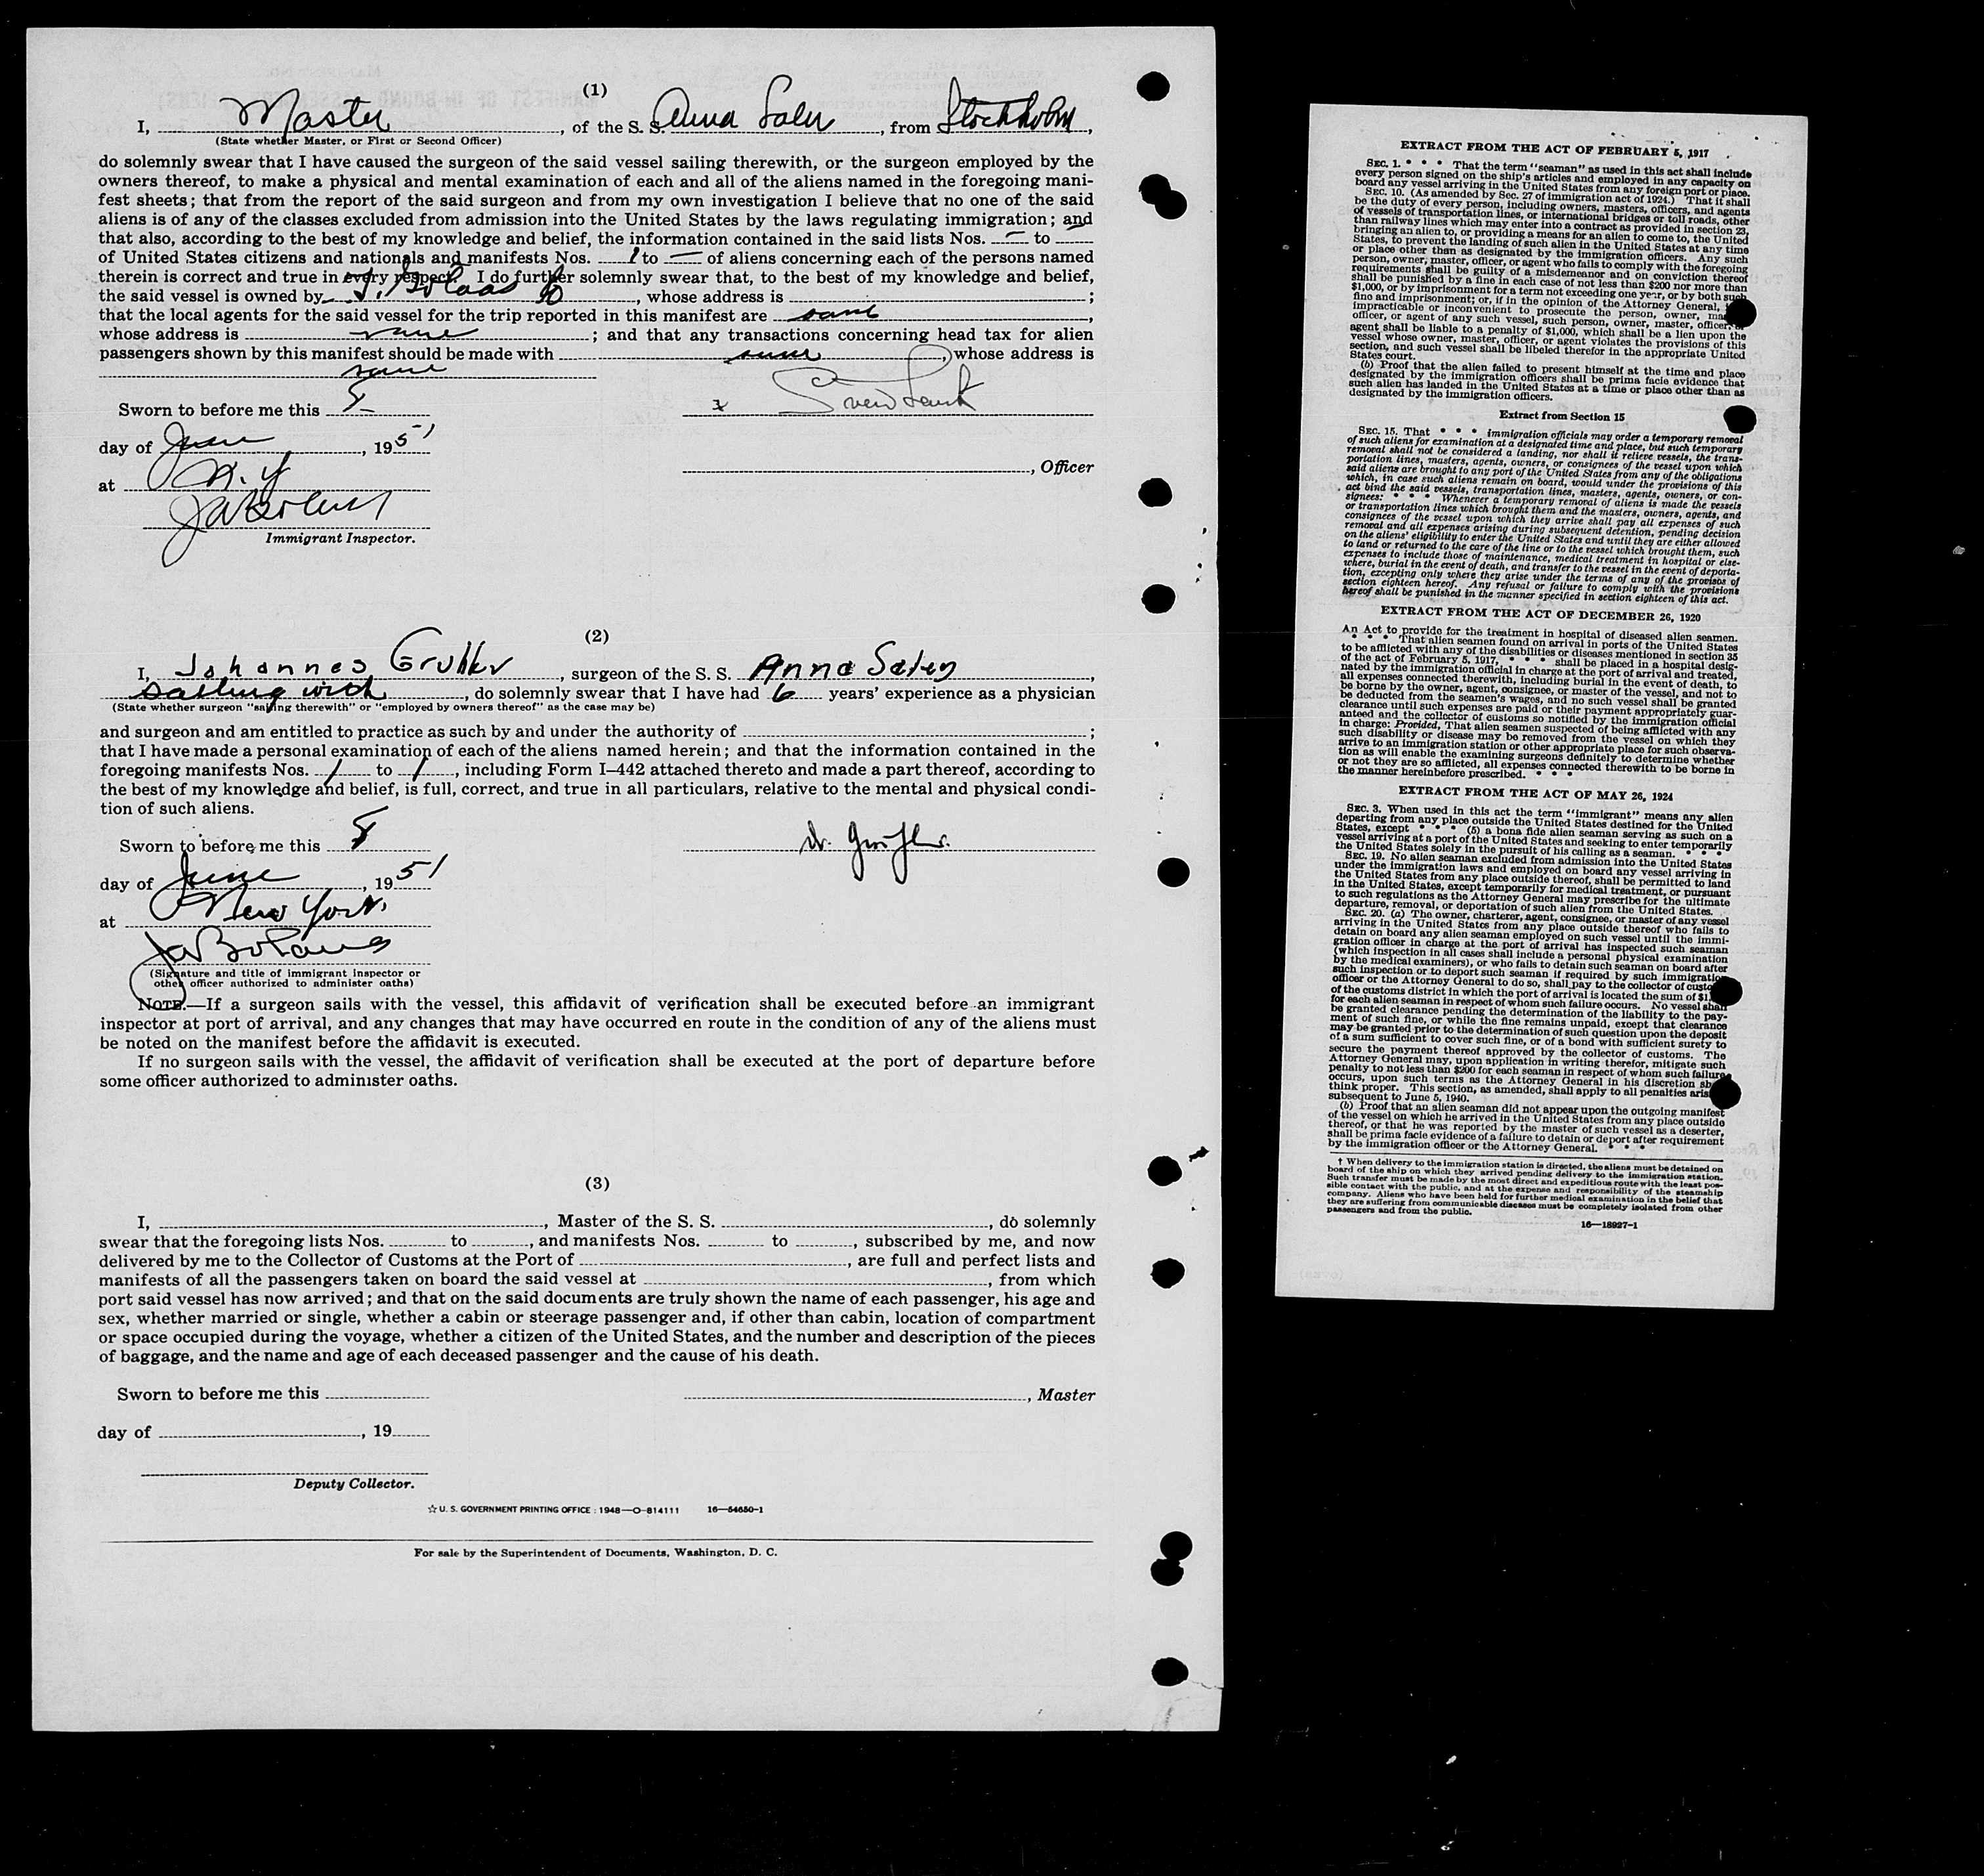 (1)
I, Master, of the S. S. Anna Salen, from Stockholm,
(State whether Master, or First or Second Officer)
do solemnly swear that I have caused the surgeon of the said vessel sailing therewith, or the surgeon employed by the
owners thereof, to make a physical and mental examination of each and all of the aliens named in the foregoing mani-
fest sheets; that from the report of the said surgeon and from my own investigation I believe that no one of the said
aliens is of any of the classes excluded from admission into the United States by the laws regulating immigration; and
that also, according to the best of my knowledge and belief, the information contained in the said lists Nos. — to
of United States citizens and nationals and manifests Nos. 1 to — of aliens concerning each of the persons named
therein is correct and true in every respect. I do further solemnly swear that, to the best of my knowledge and belief,
the said vessel is owned by , whose address is ;
that the local agents for the said vessel for the trip reported in this manifest are same,
whose address is same; and that any transactions concerning head tax for alien
passengers shown by this manifest should be made with same, whose address is
same
Sworn to before me this 8
x
day of June, 1951
, Officer
at N. Y
Immigrant Inspector.
(2)
I, Johannes , surgeon of the S. S. Anna Salen,
sailing with, do solemnly swear that I have had 6 years' experience as a physician
(State whether surgeon "sailing therewith" or "employed by owners thereof" as the case may be)
and surgeon and am entitled to practice as such by and under the authority of ;
that I have made a personal examination of each of the aliens named herein; and that the information contained in the
foregoing manifests Nos. 1 to 1, including Form I–442 attached thereto and made a part thereof, according to
the best of my knowledge and belief, is full, correct, and true in all particulars, relative to the mental and physical condi-
tion of such aliens.
Sworn to before me this 8
day of June, 1951
at New York.
(Signature and title of immigrant inspector or
other officer authorized to administer oaths)
NOTE.—If a surgeon sails with the vessel, this affidavit of verification shall be executed before an immigrant
inspector at port of arrival, and any changes that may have occurred en route in the condition of any of the aliens must
be noted on the manifest before the affidavit is executed.
If no surgeon sails with the vessel, the affidavit of verification shall be executed at the port of departure before
some officer authorized to administer oaths.
(3)
I, , Master of the S. S. , do solemnly
swear that the foregoing lists Nos. to , and manifests Nos. to , subscribed by me, and now
delivered by me to the Collector of Customs at the Port of , are full and perfect lists and
manifests of all the passengers taken on board the said vessel at , from which
port said vessel has now arrived; and that on the said documents are truly shown the name of each passenger, his age and
sex, whether married or single, whether a cabin or steerage passenger and, if other than cabin, location of compartment
or space occupied during the voyage, whether a citizen of the United States, and the number and description of the pieces
of baggage, and the name and age of each deceased passenger and the cause of his death.
Sworn to before me this
, Master
day of , 19
Deputy Collector.
☆ U. S. GOVERNMENT PRINTING OFFICE : 1948—O-814111 16—54650-1
For sale by the Superintendent of Documents, Washington, D. C.
EXTRACT FROM THE ACT OF FEBRUARY 5, 1917
SEC. 1. * * * That the term "seaman" as used in this act shall include
every person signed on the ship's articles and employed in any capacity on
board any vessel arriving in the United States from any foreign port or place.
SEC. 10. (As amended by Sec. 27 of immigration act of 1924.) That it shall
be the duty of every person, including owners, masters, officers, and agents
of vessels of transportation lines, or international bridges or toll roads, other
than railway lines which may enter into a contract as provided in section 23,
bringing an alien to, or providing a means for an alien to come to, the United
States, to prevent the landing of such alien in the United States at any time
or place other than as designated by the immigration officers. Any such
person, owner, master, officer, or agent who fails to comply with the foregoing
requirements shall be guilty of a misdemeanor and on conviction thereof
shall be punished by a fine in each case of not less than $200 nor more than
$1,000, or by imprisonment for a term not exceeding one year, or by both such
fine and imprisonment; or, if in the opinion of the Attorney General,
impracticable or inconvenient to prosecute the person, owner,
officer, or agent of any such vessel, such person, owner, master, officer,
agent shall be liable to a penalty of $1,000, which shall be a lien upon the
vessel whose owner, master, officer, or agent violates the provisions of this
section, and such vessel shall be libeled therefor in the appropriate United
States court.
(b) Proof that the alien failed to present himself at the time and place
designated by the immigration officers shall be prima facie evidence that
such alien has landed in the United States at a time or place other than as
designated by the immigration officers.
Extract from Section 15
SEC. 15. That * * * immigration officials may order a temporary removal
of such aliens for examination at a designated time and place, but such temporary
removal shall not be considered a landing, nor shall it relieve vessels, the trans-
portation lines, masters, agents, owners, or consignees of the vessel upon which
said aliens are brought to any port of the United States from any of the obligations
which, in case such aliens remain on board, would under the provisions of this
act bind the said vessels, transportation lines, masters, agents, owners, or con-
signees: * * * Whenever a temporary removal of aliens is made the vessels
or transportation lines which brought them and the masters, owners, agents, and
consignees of the vessel upon which they arrive shall pay all expenses of such
removal and all expenses arising during subsequent detention, pending decision
on the aliens' eligibility to enter the United States and until they are either allowed
to land or returned to the care of the line or to the vessel which brought them, such
expenses to include those of maintenance, medical treatment in hospital or else-
where, burial in the event of death, and transfer to the vessel in the event of deporta-
tion, excepting only where they arise under the terms of any of the provisos of
section eighteen hereof. Any refusal or failure to comply with the provisions
hereof shall be punished in the manner specified in section eighteen of this act.
EXTRACT FROM THE ACT OF DECEMBER 26, 1920
An Act to provide for the treatment in hospital of diseased alien seamen.
* * * That alien seamen found on arrival in ports of the United States
to be afflicted with any of the disabilities or diseases mentioned in section 35
of the act of February 5, 1917, * * * shall be placed in a hospital desig-
nated by the immigration official in charge at the port of arrival and treated,
all expenses connected therewith, including burial in the event of death, to
be borne by the owner, agent, consignee, or master of the vessel, and not to
be deducted from the seamen's wages, and no such vessel shall be granted
clearance until such expenses are paid or their payment appropriately guar-
anteed and the collector of customs so notified by the immigration official
in charge: Provided, That alien seamen suspected of being afflicted with any
such disability or disease may be removed from the vessel on which they
arrive to an immigration station or other appropriate place for such observa-
tion as will enable the examining surgeons definitely to determine whether
or not they are so afflicted, all expenses connected therewith to be borne in
the manner hereinbefore prescribed. * * *
EXTRACT FROM THE ACT OF MAY 26, 1924
SEC. 3. When used in this act the term "immigrant" means any alien
departing from any place outside the United States destined for the United
States, except * * * (5) a bona fide alien seaman serving as such on a
vessel arriving at a port of the United States and seeking to enter temporarily
the United States solely in the pursuit of his calling as a seaman. * * *
SEC. 19. No alien seaman excluded from admission into the United States
under the immigration laws and employed on board any vessel arriving in
the United States from any place outside thereof, shall be permitted to land
in the United States, except temporarily for medical treatment, or pursuant
to such regulations as the Attorney General may prescribe for the ultimate
departure, removal, or deportation of such alien from the United States.
SEC. 20. (a) The owner, charterer, agent, consignee, or master of any vessel
arriving in the United States from any place outside thereof who fails to
detain on board any alien seaman employed on such vessel until the immi-
gration officer in charge at the port of arrival has inspected such seaman
(which inspection in all cases shall include a personal physical examination
by the medical examiners), or who fails to detain such seaman on board after
such inspection or to deport such seaman if required by such immigration
officer or the Attorney General to do so, shall pay to the collector of
of the customs district in which the port of arrival is located the sum of
for each alien seaman in respect of whom such failure occurs. No vessel shall
be granted clearance pending the determination of the liability to the pay-
ment of such fine, or while the fine remains unpaid, except that clearance
may be granted prior to the determination of such question upon the deposit
of a sum sufficient to cover such fine, or of a bond with sufficient surety to
secure the payment thereof approved by the collector of customs. The
Attorney General may, upon application in writing therefor, mitigate such
penalty to not less than $200 for each seaman in respect of whom such failure
occurs, upon such terms as the Attorney General in his discretion
think proper. This section, as amended, shall apply to all penalties
subsequent to June 5, 1940.
(b) Proof that an alien seaman did not appear upon the outgoing manifest
of the vessel on which he arrived in the United States from any place outside
thereof, or that he was reported by the master of such vessel as a deserter,
shall be prima facie evidence of a failure to detain or deport after requirement
by the immigration officer or the Attorney General. * * *
† When delivery to the immigration station is directed, the aliens must be detained on
board of the ship on which they arrived pending delivery to the immigration station.
Such transfer must be made by the most direct and expeditious route with the least pos-
sible contact with the public, and at the expense and responsibility of the steamship
company. Aliens who have been held for further medical examination in the belief that
they are suffering from communicable diseases must be completely isolated from other
passengers and from the public.
16—18927-1